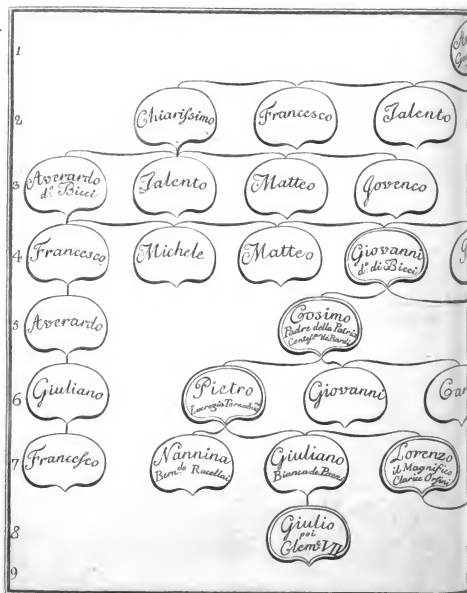 1
2
Chiarissimo
Francesco
Talento
3
Averardo
d.º Bicci
Talento
Matteo
Giovenco
4
Francesco
Michele
Matteo
Giovanni
d.º di Bicci
5
Averardo
Cosimo
Padre della Patria
6
Giuliano
Pietro
Giovanni
7
Francesco
Nannina
Rucellai
Giuliano
Lorenzo
il Magnifico
Clarice Orsini
8
Giulio
poi
Clem.e VII
9